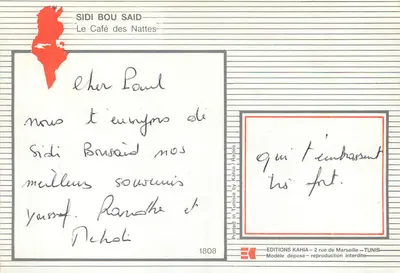 SIDI BOU SAID
Le Café des Nattes
Cher Paul
nous t'envoyons de
Sidi Bousaid nos
meilleurs souvenirs
Youssef. et
Mehdi
1808
qui t'embrassent
très fort.
Printed in Tunisia by Kahia
EDITIONS KAHIA – 2 rue de Marseille – TUNIS
Modèle déposé - reproduction interdite